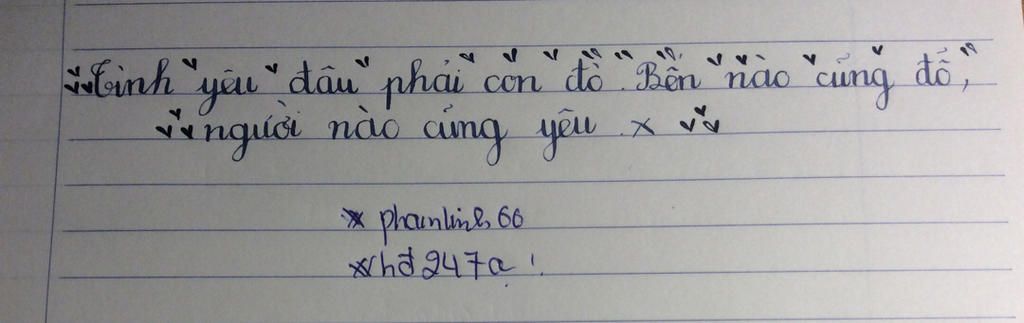 tình yêu đâu phải con đò. Bến nào cũng đỗ,
người nào cũng yêu. x
phamlinh 66
hđ 247a !